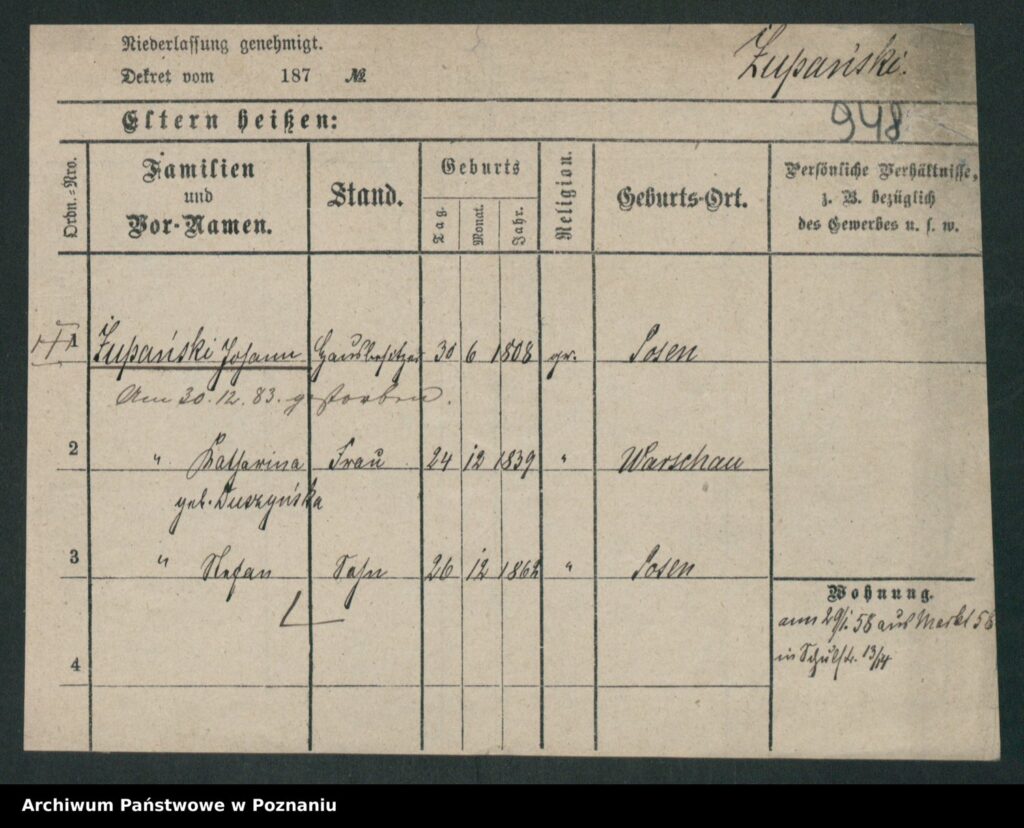 Niederlassung genehmigt.
Dekret vom 187 №
Żupański.
948
Eltern heißen:
Ordn.=Nro.
Familien und Vor-Namen.
Stand.
Geburts
Tag.
Monat.
Jahr.
Religion.
Geburts-Ort.
Persönliche Verhältnisse,
z. B. bezüglich
des Gewerbes u. s. w.
1 Żupański Johann Hausbesitzer 30 6 1808 gr. Posen
Am 30.12.83. gestorben.
2 " Katharina Frau 24 12 1839 " Warschau
geb. Duszyńska
3 " Stefan Sohn 26 12 1862 " Posen
Wohnung.
aus Markt 56
in Schulstr. 13/14
4
Archiwum Państwowe w Poznaniu